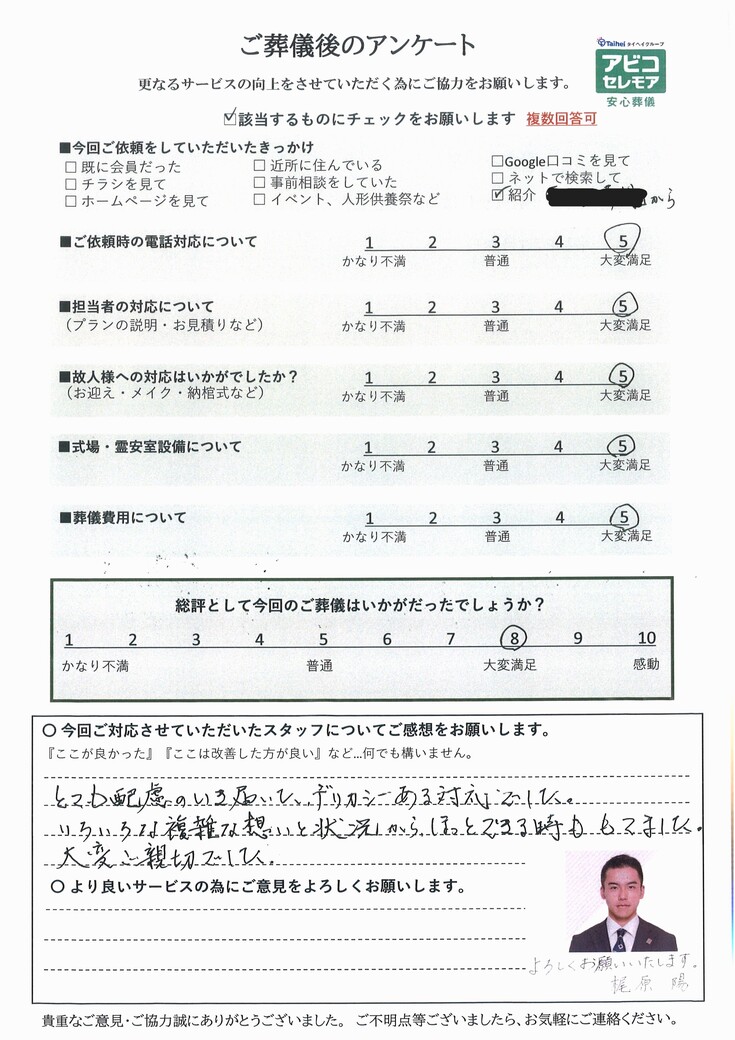 ご葬儀後のアンケート
Taihei タイヘイグループ
アビコ
セレモア
安心葬儀
更なるサービスの向上をさせていただく為にご協力をお願いします。
☑該当するものにチェックをお願いします 複数回答可
■今回ご依頼をしていただいたきっかけ
□ 既に会員だった □ 近所に住んでいる □Google口コミを見て
□ チラシを見て □ 事前相談をしていた □ ネットで検索して
□ ホームページを見て □ イベント、人形供養祭など ☑ 紹介 から
■ご依頼時の電話対応について 1 2 3 4 5
かなり不満 普通 大変満足
■担当者の対応について 1 2 3 4 5
（プランの説明・お見積りなど） かなり不満 普通 大変満足
■故人様への対応はいかがでしたか？ 1 2 3 4 5
（お迎え・メイク・納棺式など） かなり不満 普通 大変満足
■式場・霊安室設備について 1 2 3 4 5
かなり不満 普通 大変満足
■葬儀費用について 1 2 3 4 5
かなり不満 普通 大変満足
総評として今回のご葬儀はいかがだったでしょうか？
1 2 3 4 5 6 7 8 9 10
かなり不満 普通 大変満足 感動
〇 今回ご対応させていただいたスタッフについてご感想をお願いします。
『ここが良かった』『ここは改善した方が良い』など...何でも構いません。
とても配慮のいき届いた、デリカシーある対応でした。
いろいろな複雑な想いと状況からほっとできる時ももてました。
大変ご親切でした。
〇 より良いサービスの為にご意見をよろしくお願いします。
よろしくお願いいたします。
梶原 陽
貴重なご意見・ご協力誠にありがとうございました。 ご不明点等ございましたら、お気軽にご連絡ください。